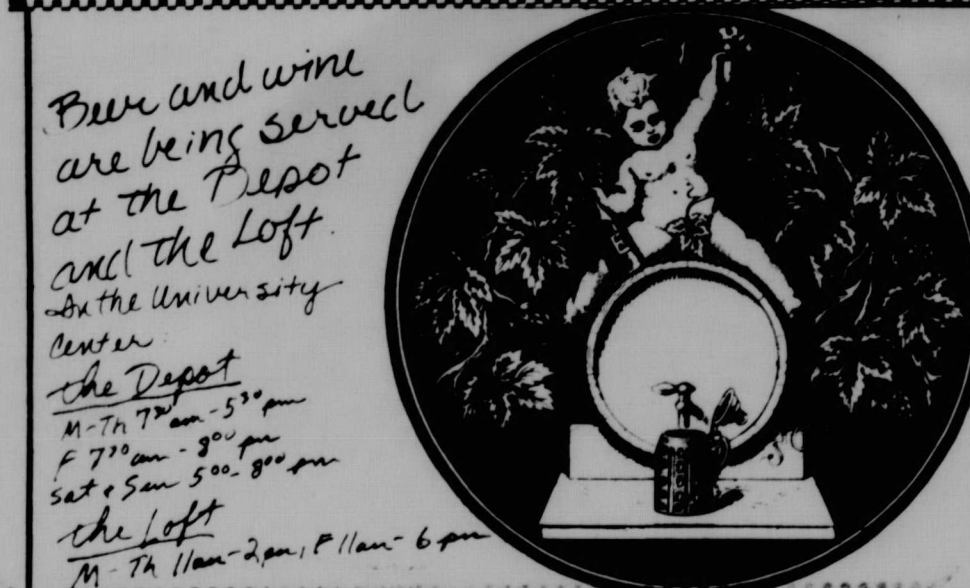 Beer and wine
are being served
at the Depot
and the Loft.
In the University
Center
the Depot
M-Th 7³⁰ am - 5³⁰ pm
F 7³⁰ am - 8⁰⁰ pm
Sat & Sun 5⁰⁰ - 8⁰⁰ pm
the Loft
M - Th 11am-2pm, F 11am - 6 pm